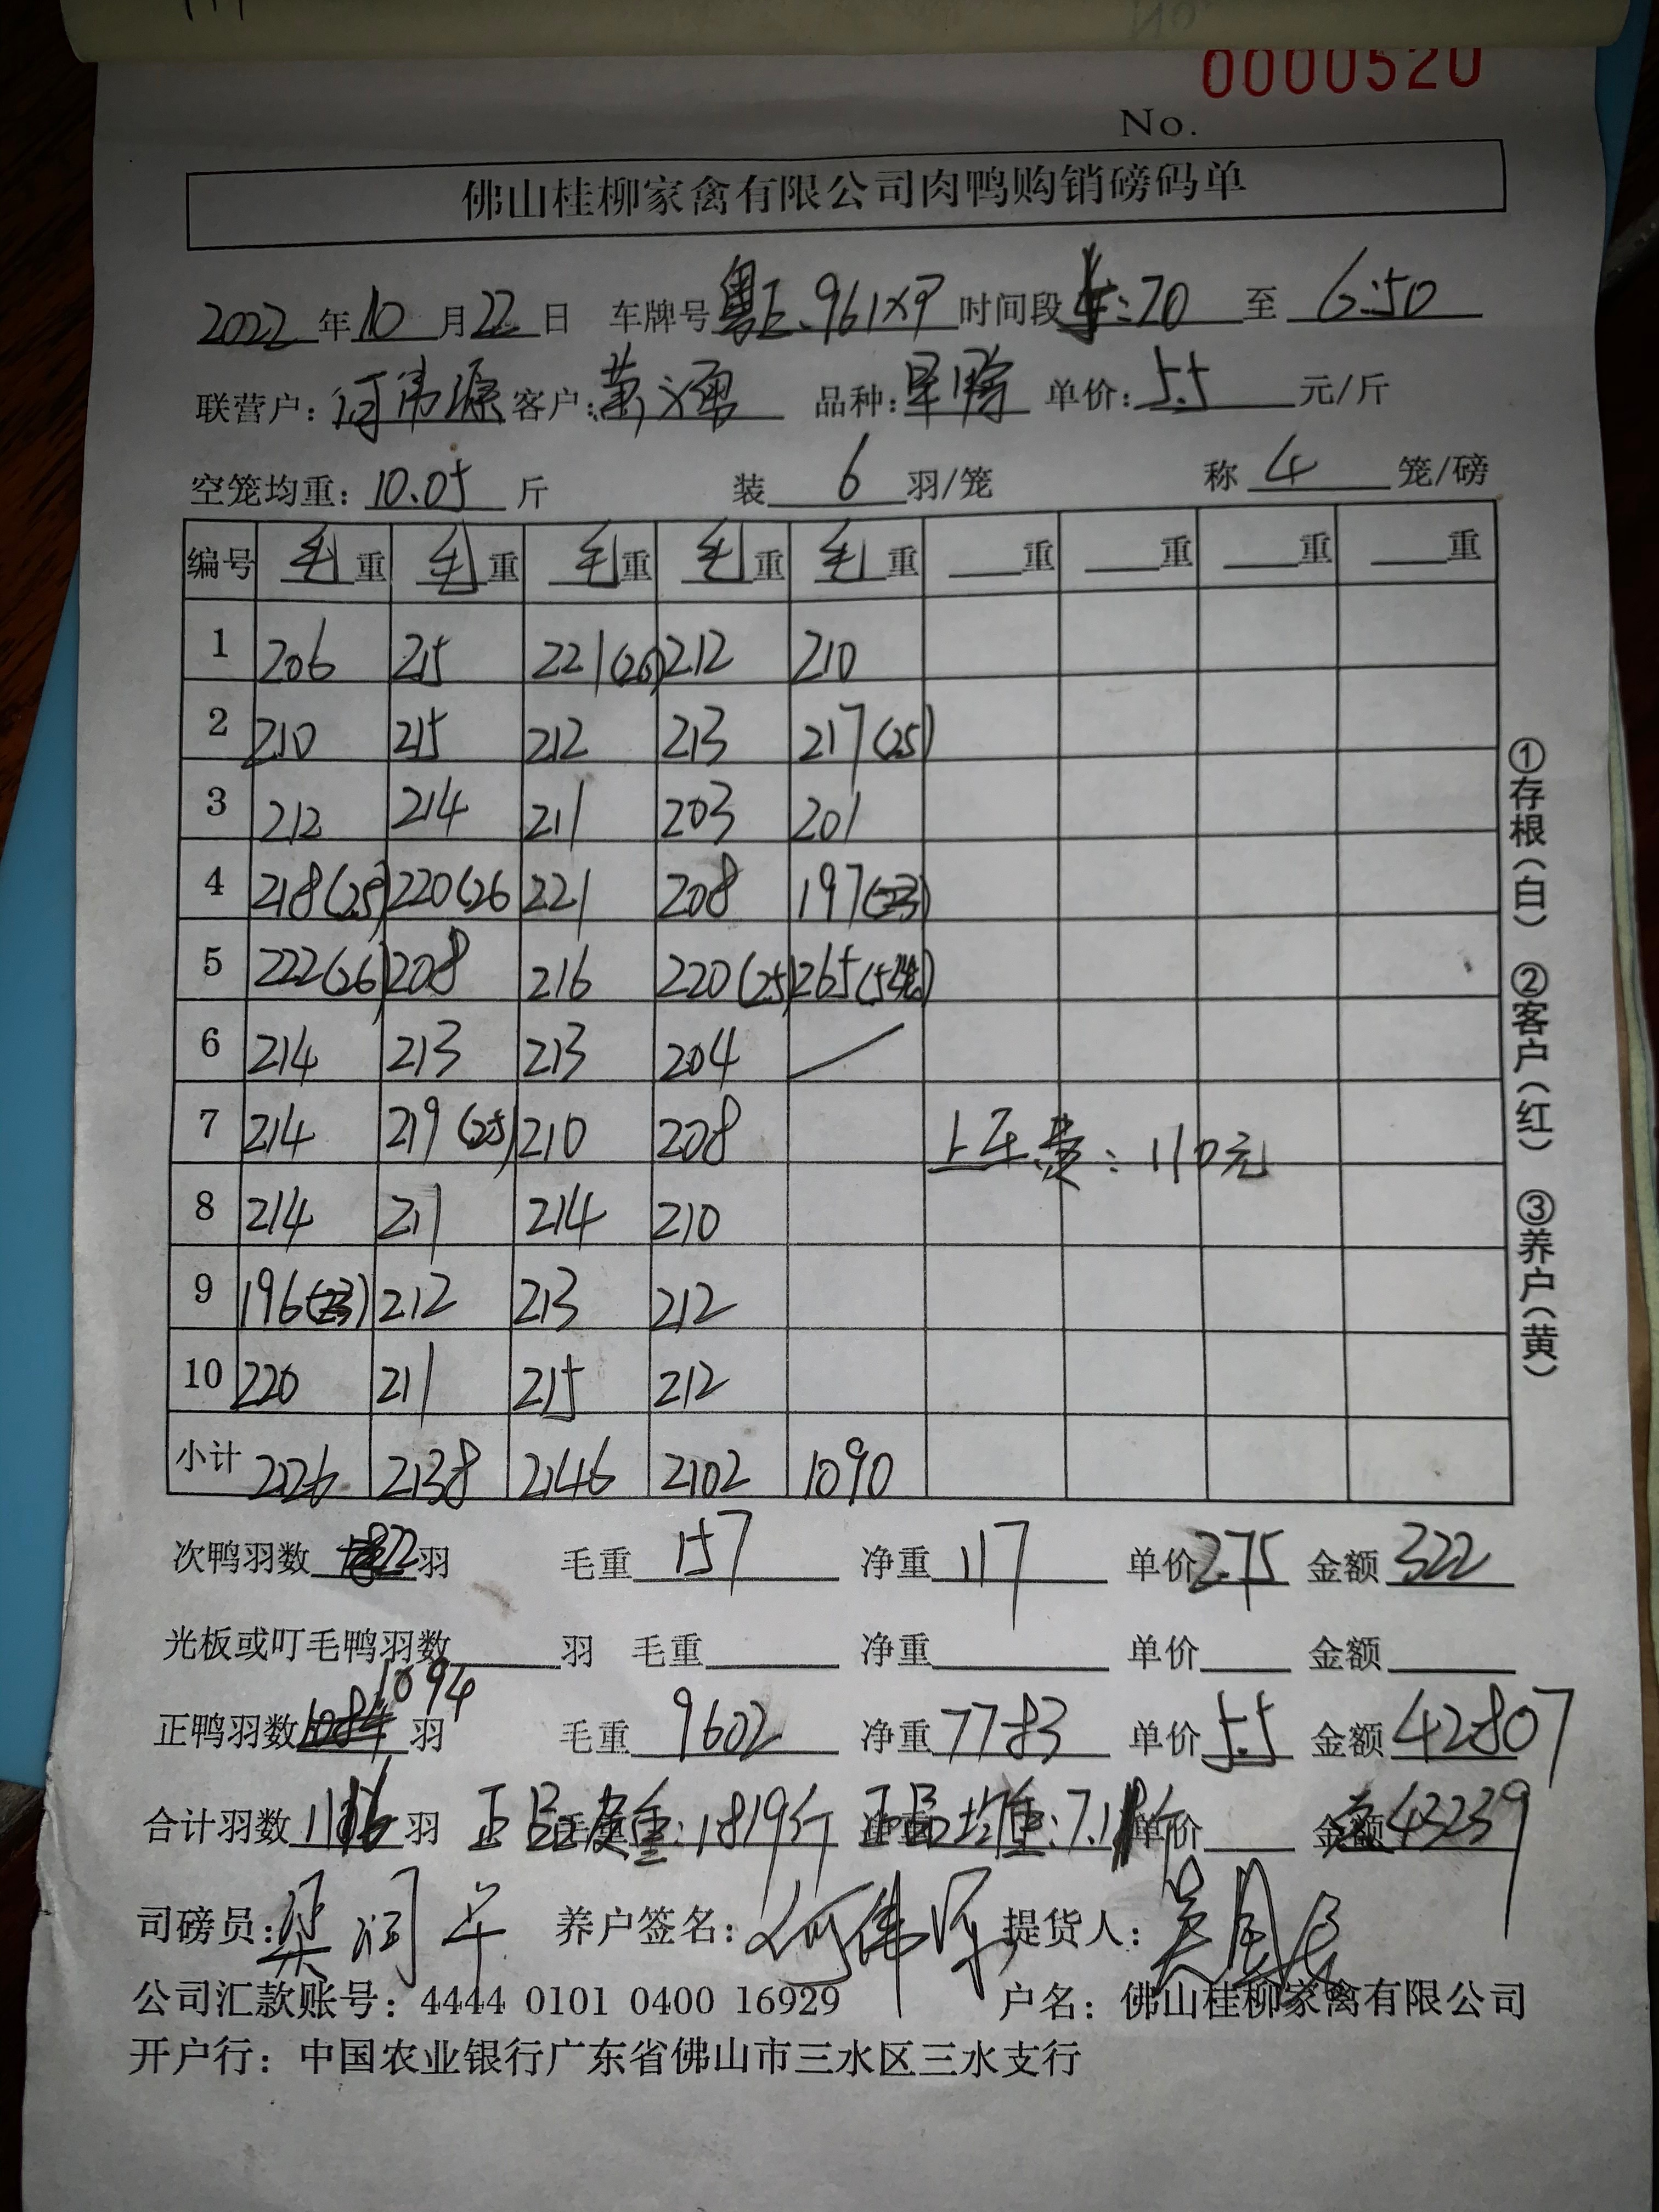 0000520
No.
佛山桂柳家禽有限公司肉鸭购销磅码单
2022年10月22日 车牌号粤E.961X9 时间段 :20 至 6:50
联营户:何伟源 客户: 品种: 单价:5.5元/斤
空笼均重:10.05斤 装6羽/笼 称4笼/磅
编号 毛重 毛重 毛重 毛重 毛重 重 重 重 重
1 206 215 221(26) 212 210
2 210 215 212 213 217(25)
3 212 214 211 203 201
4 218(25) 220(26 221 208 197(23)
5 222(26) 208 216 220(25) 265(5笼)
6 214 213 213 204 /
7 214 219(25) 210 208 上车费:110元
8 214 211 214 210
9 196(23) 212 213 212
10 220 211 215 212
小计 2126 2138 2146 2102 1090
①存根(白) ②客户(红) ③养户(黄)
次鸭羽数22羽 毛重157 净重117 单价2.75 金额322
光板或叮毛鸭羽数 羽 毛重 净重 单价 金额
正鸭羽数1094羽 毛重9602 净重7783 单价5.5 金额42807
合计羽数1116羽 正品皮重:1819斤 正品均重:7.11斤 单价 金额43239
司磅员:梁润华 养户签名:何伟源 提货人:
公司汇款账号:4444 0101 0400 16929 户名:佛山桂柳家禽有限公司
开户行:中国农业银行广东省佛山市三水区三水支行